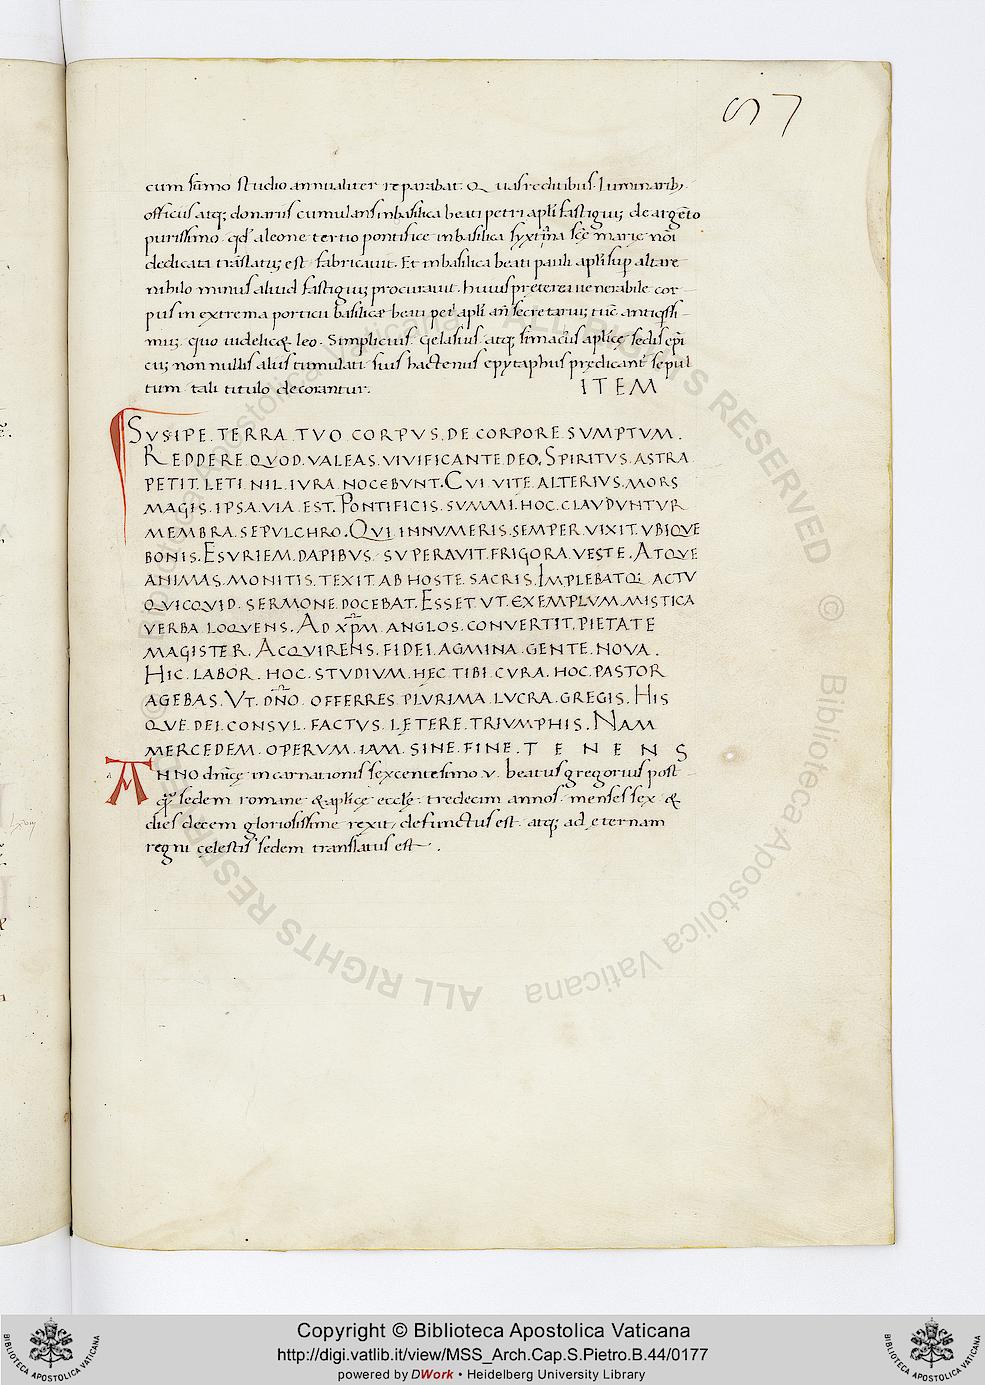 57
cum sūmo studio annualiter reparabat. Quas redditibus. Luminarib;
officiis atq; donariis cumulans in basilica beati petri apłi fastigiū; de argēto
purissimo qđ a leone tertio pontifice in basilica syxtīna scē marie noīi
dedicata trāslatū; est fabricauit. Et in basilica beati pauli apłi sup altare
nihilo minus aliud fastigiū; procurauit. huius preterea uenerabile cor-
pus in extrema porticu basilicæ beati petˈ apłi añ secretariū; tūc antiqssi-
mū; quo uidelic& leo. Simplicius. Gelasius atq; simacus aplicę sedis epi
cū; non nullis aliis tumulati. suis hactenus epytaphiis prędicantˈ sepul
tum tali titulo decorantur. ITEM
SUSIPE. TERRA. TVO CORPVS. DE CORPORE. SVMPTVM.
REDDERE. QVOD. VALEAS. VIVIFICANTE. DEO. SPIRITVS. ASTRA
PETIT. LETI. NIL. IVRA NOCEBVNT. CVI VITE. ALTERIVS. MORS
MAGIS. IPSA. VIA. EST. PONTIFICIS. SVMMI. HOC. CLAVDVNTVR
MEMBRA. SEPVLCHRO. QVI INNVMERIS. SEMPER. VIXIT. VBIQVE
BONIS. ESVRIEM. DAPIBVS. SVPERAVIT. FRIGORA. VESTE. ATQVE
ANIMAS. MONITIS. TEXIT. AB HOSTE. SACRIS. IMPLEBATQ; ACTV
QVICQVID. SERMONE. DOCEBAT. ESSET VT. EXEMPLVM. MISTICA
VERBA LOQVENS. AD XPM ANGLOS. CONVERTIT. PIETATE
MAGISTER. ACQVIRENS. FIDEI. AGMINA GENTE. NOVA.
HIC. LABOR. HOC. STVDIVM. HEC TIBI. CVRA. HOC. PASTOR
AGEBAS. VT. DÑO OFFERRES. PLVRIMA. LVCRA. GREGIS. HIS
QVE DEI. CONSVL. FACTVS. LETERE. TRIVMPHIS. NAM
MERCEDEM. OPERVM. IAM. SINE. FINE. T E N E N S
ANNO dnīcę incarnationis sexcentesimo v. beatus gregorius post-
q̄ sedem romane & aplicę eccłę. tredecim annos. menses sex &
dies decem gloriosissime rexit, defunctus est. atq; ad ęternam
regni cęlestis sedem translatus est.
ALL RIGHTS RESERVED © Biblioteca Apostolica Vaticana
ALL RIGHTS RESERVED © Biblioteca Apostolica Vaticana
Copyright © Biblioteca Apostolica Vaticana
http://digi.vatlib.it/view/MSS_Arch.Cap.S.Pietro.B.44/0177
powered by DWork • Heidelberg University Library
BIBLIOTECA APOSTOLICA VATICANA
BIBLIOTECA APOSTOLICA VATICANA